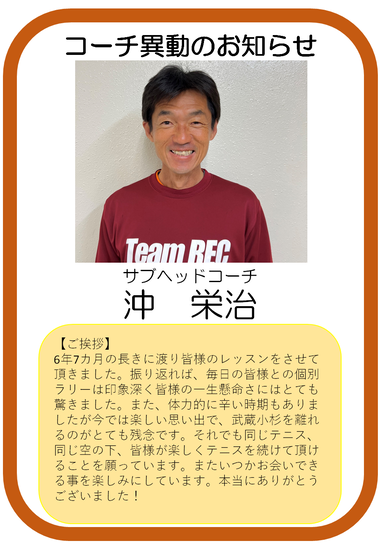 コーチ異動のお知らせ
Team REC
サブヘッドコーチ
沖　栄治
【ご挨拶】
6年7カ月の長きに渡り皆様のレッスンをさせて
頂きました。振り返れば、毎日の皆様との個別
ラリーは印象深く皆様の一生懸命さにはとても
驚きました。また、体力的に辛い時期もありま
したが今では楽しい思い出で、武蔵小杉を離れ
るのがとても残念です。それでも同じテニス、
同じ空の下、皆様が楽しくテニスを続けて頂け
ることを願っています。またいつかお会いでき
る事を楽しみにしています。本当にありがとう
ございました！